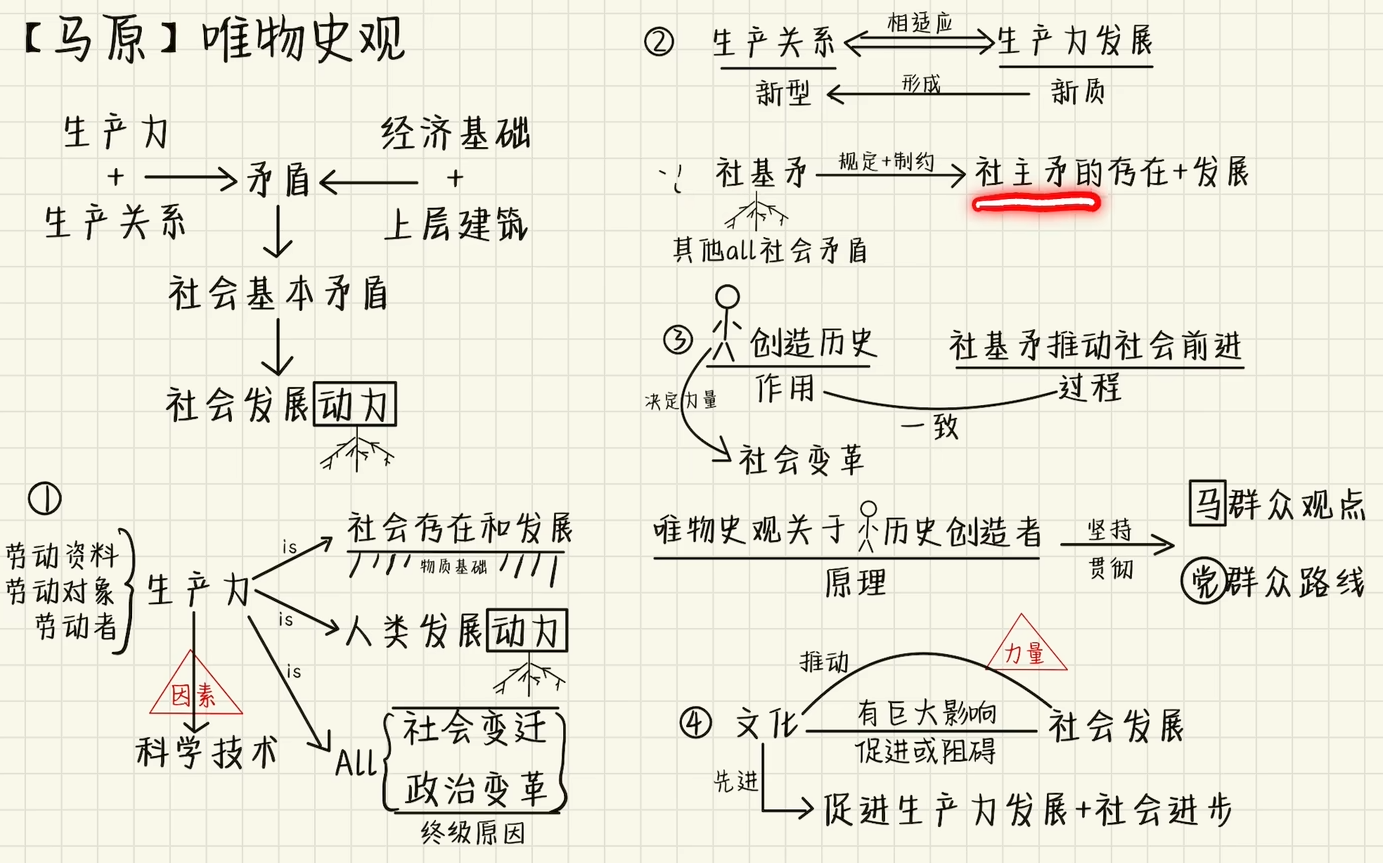 【马原】唯物史观
生产力
+
生产关系
矛盾
经济基础
+
上层建筑
社会基本矛盾
社会发展动力
①
劳动资料
劳动对象
劳动者
生产力
is
社会存在和发展
物质基础
is
人类发展动力
is
All
社会变迁
政治变革
终级原因
因素
科学技术
② 生产关系 相适应 生产力发展
新型 形成 新质
∵ 社基矛 规定+制约 社主矛的存在+发展
其他all社会矛盾
③ 创造历史 社基矛推动社会前进
作用 过程
一致
决定力量
社会变革
唯物史观关于 历史创造者
原理
坚持
贯彻
马群众观点
党群众路线
推动
力量
④ 文化 有巨大影响 社会发展
促进或阻碍
先进
促进生产力发展+社会进步